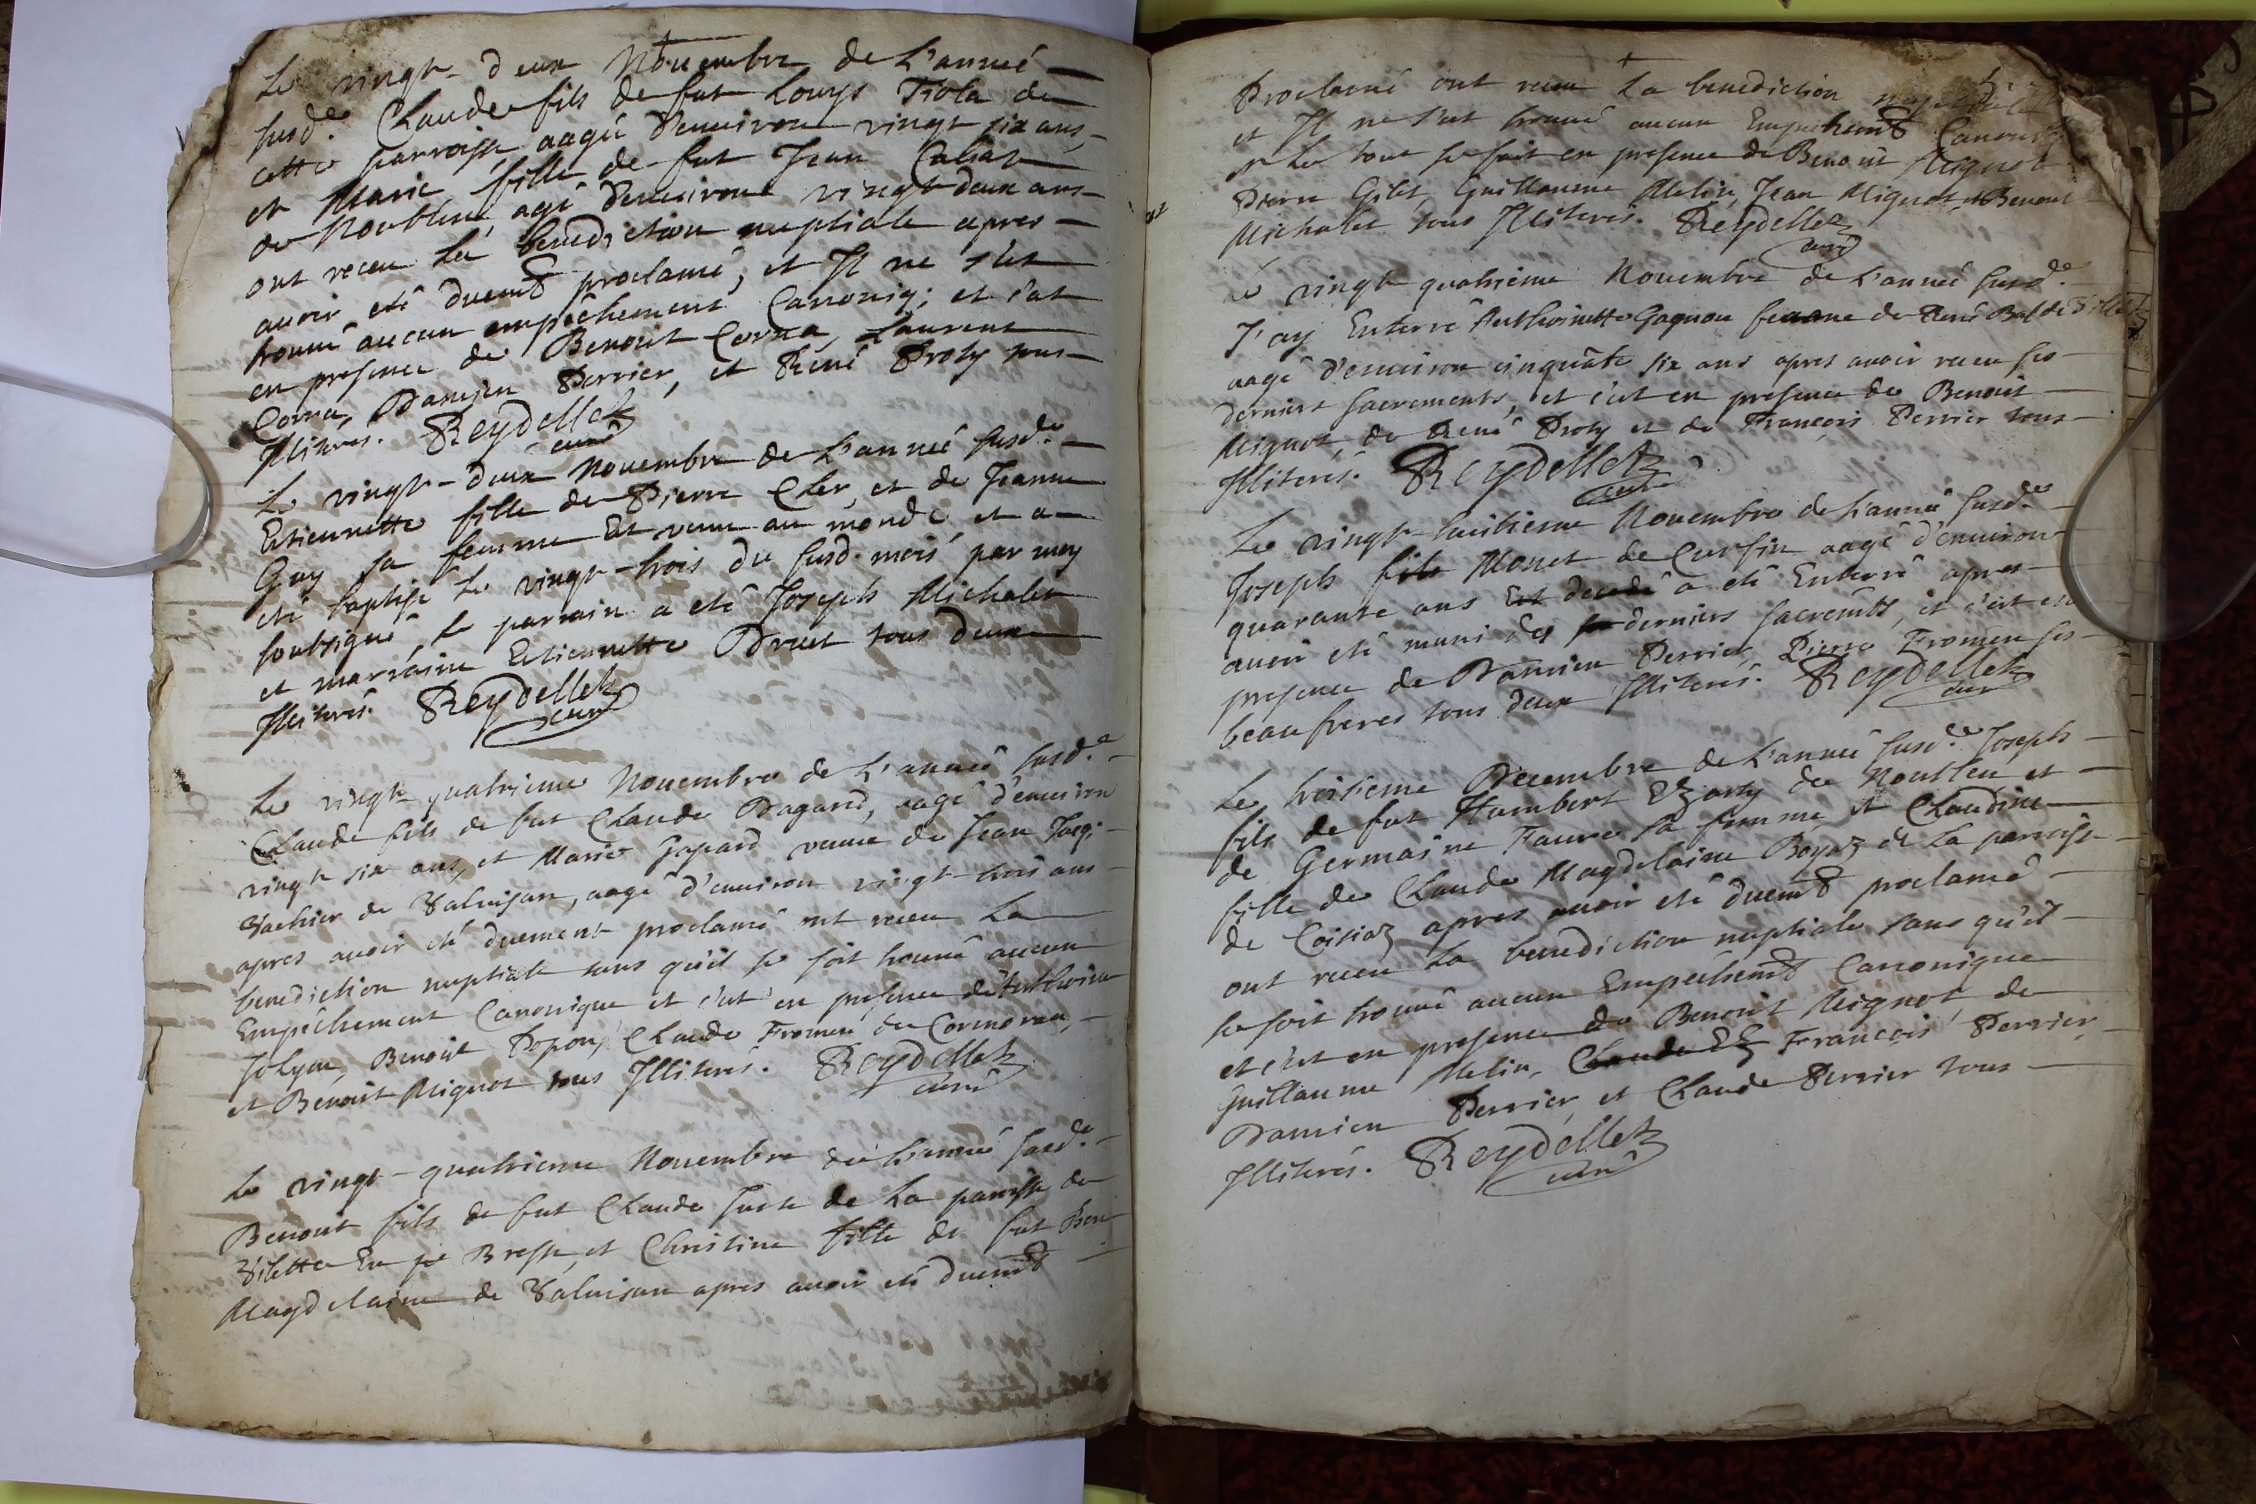 Le vingt-deux Novembre de L'année
susd.e Claude fils de fut Louys Tiola de
cette parroisse aagé d'enuiron vingt six ans,
et Marie fille de fut Jean Cabat
de Noubleue, agé d'enuiron vingt deux ans
ont receu La benediction nuptiale apres
auoir eté duemt proclamé, et Il ne s'est
trouué aucun empêchement Canoniq; et c'est
en presence de Benoit Corna, Laurent
Corna, Damien Perrier, et René Proly tous
Illiterés. Reydellet
curé
Le vingt-deux Nouembre de L'année susd.e
Etiennette fille de Pierre Cler, et de Jeanne
Guy sa femme Est venue au monde et a
eté baptisé Le vingt-trois du susd. mois par moy
soubsigné le parrain a eté Joseph Michalet
et marraine Etiennette Druet tous deux
Illiterés. Reydellet
curé
Le vingt quatrieme Nouembre de L'année susd.e
Claude fils de fut Claude Dagand, aagé d'enuiron
vingt six ans, et Marie Gspard veuue de Jean Jacq;
Vachier de Valuisan, aagé d'enuiron vingt-trois ans
apres auoir eté duement proclamé ont receu La
benediction nuptiale sans qu'il se soit trouué aucun
Empêchement Canonique et c'est en presence d'Anthoine
Jolyon, Benoit Popon, Claude Fromen de Cormoran,
et Benoit Mignot tous Illiterés. Reydellet
curé
Le vingt-quatrieme Nouembre de L'année susd.e
Benoit fils de fut Claude Juste de La paroisse de
Vilette En Bresse, et Christine fille de fut Bene
Magdelaine de Valuisan apres auoir eté duemt
Proclamé ont receu La benediction
et Il ne s'est trouué aucun Empechemt Canoniq
et Le tout se fait en presence de Benoit Mignot
Pierre Gilet, Guillaume Melin, Jean Mignot, et Benoit
Michalet tous Illiterés. Reydellet
curé
Le vingt quatrieme Nouembre de L'année susd.e
J'ay Enterré Anthoinette Gagnon femme de René
aagé d'enuiron cinquâte six ans apres auoir receu se
derniers sacrements, et c'est en presence de Benoit
Mignot de René Proly et de François Perrier tous
Illiterés. Reydellet
curé
Le vingt-huitieme Nouembre de L'année susd.e
Joseph fils Monet de Curfin aagé d'enuiron
quarante ans Est decedé a eté Enterré apres
auoir eté muni des derniers sacremts, et c'est en
presence de Damien Perrier, Pierre Fromen ses
beaufreres tous deux Illiterés. Reydellet
curé
Le troisieme Decembre de L'année susd.e Joseph
fils de fut Humbert Ezarty de Noubleu et
de Germaine Faure sa femme, et Claudine
fille de Claude Magdelaine Boyaz de La paroisse
de Coisiaz apres auoir eté duemt proclamé
ont receu La benediction nuptiale sans qu'il
se soit trouué aucun Empechemt Canonique
et c'est en presence de Benoit Mignot, de
Guillaume Melin, Claude François Perrier,
Damien Perrier, et Claude Perrier tous
Illiterés. Reydellet
curé